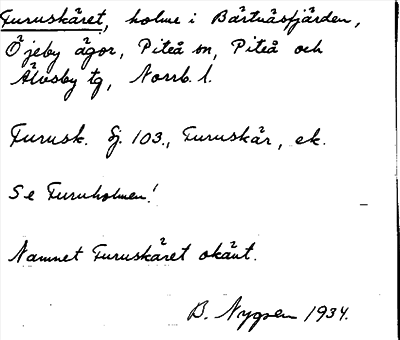 Furuskäret, holme i Bärtnäsfjärden,
Öjeby ägor, Piteå sn, Piteå och
Älvsby tg, Norrb. l.
Furusk. Sj. 103., Furuskär, ek.
Se Furuholmen!
Namnet Furuskäret okänt.
B. Nygren 1934.